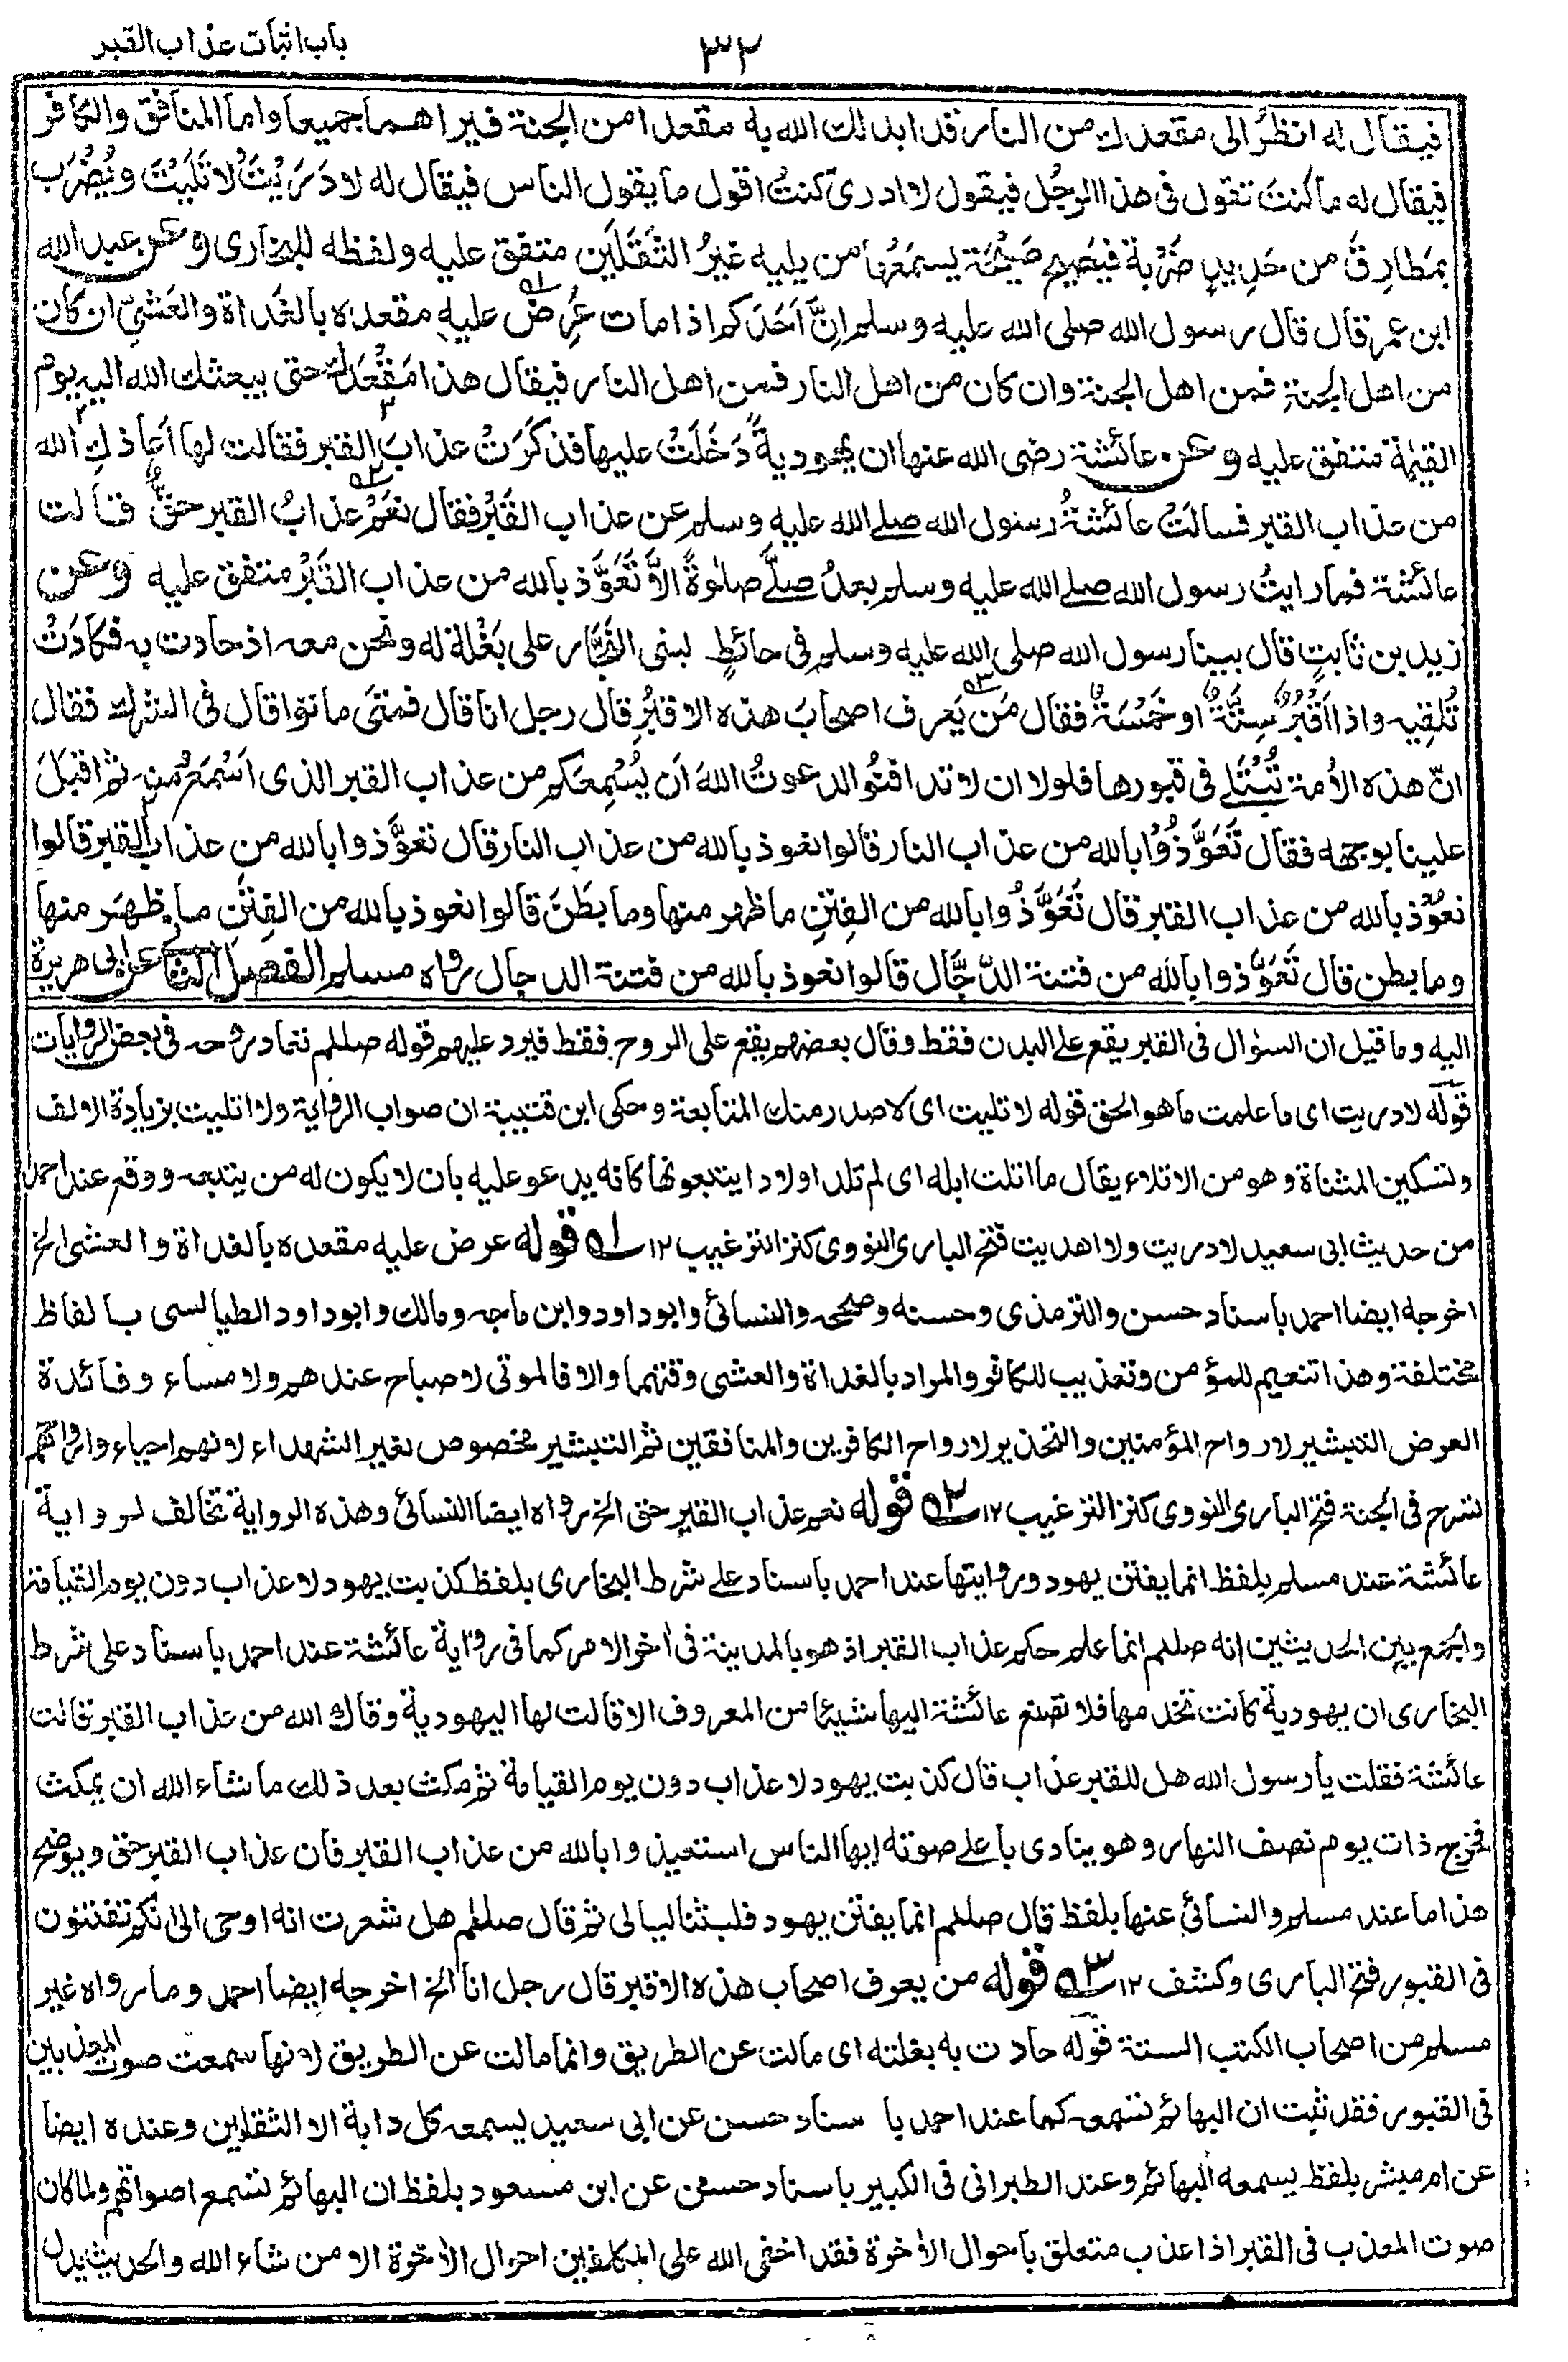 باب اثبات عذاب القبر
٣٢
فيقال له انظُر الى مقعدك من النار قد ابدلك الله به مقعدا من الجنة فيراهما جميعا واما المنافق والكافر
فيقال له ما كنتَ تقول فى هذا الرجُل فيقول لا ادرىْ كنتُ اقول ما يقول الناس فيقال له لا دَرَيْتَ ولا تَلَيْتَ ويُضْرَب
بمَطارِق من حَدِيدٍ ضَرْبة فيَصِيح صَيْحَة يسمَعُها من يليه غيرُ الثَقَلَين متفق عليه ولفظه للبخارى وعن عبد الله
ابن عمر قال قال رسول الله صلى الله عليه وسلم اِنَّ اَحَدَكم اذا مات عُرِضَ عليه مقعده بالغَداة والعَشىّ ان كان
من اهل الجنةِ فمن اهل الجنة وان كان من اهل النار فمن اهل النار فيقال هذا مَقْعَدك حتى يبعثك الله اليه يوم
القيٰمة متفق عليه وعن عائشة رضى الله عنها ان يهودية دَخَلَتْ عليها فذكَرَتْ عذابَ القبر فقالت لها اَعاذكِ الله
من عذاب القبر فسالَتْ عائشةُ رسول الله صلے الله عليه وسلم عن عذاب القَبْر فقال نعَمْ عذابُ القبر حقٌّ قالت
عائشة فما رايتُ رسول الله صلے الله عليه وسلم بعدُ صلّے صلوٰةً الاَّ تَعَوَّذ بالله من عذاب القَبْر متفق عليه وعن
زيد بن ثابتٍ قال بينا رسول الله صلى الله عليه وسلم فى حائطٍ لبنى النَّجَّار على بَغْلة له ونحن معه اذ حادت به فكادَتْ
تُلقِيه واذا اَقْبُرٌ سِتَّةٌ او خَمْسَةٌ فقال مَن يَعرف اصحابَ هذه الاقبُرِ قال رجل انا قال فمتى ماتوا قال فى الشرك فقال
انّ هذه الاُمة تُبْتَلے فى قبورها فلولا ان لا تدافنُوا لدعوتُ اللهَ اَن يُسْمِعَكم من عذاب القبر الذى اَسْمَعُ منه ثم اقبَلَ
علينا بوجهه فقال تَعَوَّذُوْا بالله من عذاب النار قالوا نعوذ بالله من عذاب النار قال تعوَّذوا بالله من عذاب القبر قالوا
نعوْذ بالله من عذاب القبر قال تَعَوَّذُوا بالله من الفِتَنِ ما ظهر منها وما بَطَنَ قالوا نعوذ بالله من الفِتَن ما ظهَر منها
وما بطن قال تَعَوَّذوا بالله من فتنة الدّجَّال قالوا نعوذ بالله من فتنة الدجال رواه مسلم الفصل الثانى عن ابى هريرة
اليه وما قيل ان السؤال فى القبر يقع علے البدن فقط وقال بعضهم يقع على الروح فقط فيرد عليهم قوله صلعم تعاد روحه فى بعض الروايات
قوله لا دريت اى ما علمت ما هو الحق قوله لا تليت اى لا صدر منك المتابعة وحكى ابن قتيبة ان صواب الرواية ولا اتليت بزيادة الالف
وتسكين المثناة وهو من الاتلاء يقال ما اتلت ابله اى لم تلد اولادا يتبعونها كانه يدعو عليه بان لا يكون له من يتبعه ووقع عند احمد
من حديث ابى سعيد لا دريت ولا اهديت فتح البارى النووى كنز الترغيب ١٢ ٥١ قوله عرض عليه مقعده بالغداة والعشى الخ
اخرجه ايضا احمد باسناد حسن والترمذى وحسنه وصححه والنسائى وابوداود وابن ماجه ومالك وابوداود الطيالسى بالفاظ
مختلفة وهذا تنعيم للمؤمن وتعذيب للكافر والمراد بالغداة والعشى وقتهما والا فالموتى لا صباح عندهم ولا مساء وفائدة
العرض التبشير لارواح المؤمنين والتحذير لارواح الكافرين والمنافقين ثم التبشير مخصوص بغير الشهداء لانهم احياء وارواحهم
تسرح فى الجنة فتح البارى النووى كنز الترغيب ١٢ ٥٢ قوله نعم عذاب القبر حق الخ رواه ايضا النسائى وهذه الرواية تخالف لرواية
عائشة عند مسلم بلفظ انما يفتن يهود وروايتها عند احمد باسناد علے شرط البخارى بلفظ كذبت يهود لا عذاب دون يوم القيامة
والجمع بين الحديثين انه صلعم انما علم حكم عذاب القبر اذ هو بالمدينة فى اٰخر الامر كما فى رواية عائشة عند احمد باسناد على شرط
البخارى ان يهودية كانت تخدمها فلا تصنع عائشة اليها شيئا من المعروف الا قالت لها اليهودية وقاك الله من عذاب القبر قالت
عائشة فقلت يا رسول الله هل للقبر عذاب قال كذبت يهود لا عذاب دون يوم القيامة ثم مكث بعد ذلك ما شاء الله ان يمكث
فخرج ذات يوم نصف النهار وهو ينادى باعلے صوته ايها الناس استعيذوا بالله من عذاب القبر فان عذاب القبر حق ويوضح
هذا ما عند مسلم والنسائى عنها بلفظ قال صلعم انما يفتن يهود فلبثنا ليالى ثم قال صلعم هل شعرت انه اوحى الى انكم تفتنون
فى القبور فتح البارى وكشف ١٢ ٥٣ قوله من يعرف اصحاب هذه الاقبر قال رجل انا الخ اخرجه ايضا احمد وما رواه غير
مسلم من اصحاب الكتب الستة قوله حادت به بغلته اى مالت عن الطريق وانما مالت عن الطريق لانها سمعت صوت المعذبين
فى القبور فقد ثبت ان البهائم تسمعه كما عند احمد باسناد حسن عن ابى سعيد يسمعه كل دابة الا الثقلين وعنده ايضا
عن ام مبشر بلفظ يسمعه البهائم وعند الطبرانى فى الكبير باسناد حسن عن ابن مسعود بلفظ ان البهائم تسمع اصواتهم ولما كان
صوت المعذب فى القبر اذا عذب متعلق باحوال الاٰخرة فقد اخفى الله على المكلفين احوال الاٰخرة الا من شاء الله والحديث يدل